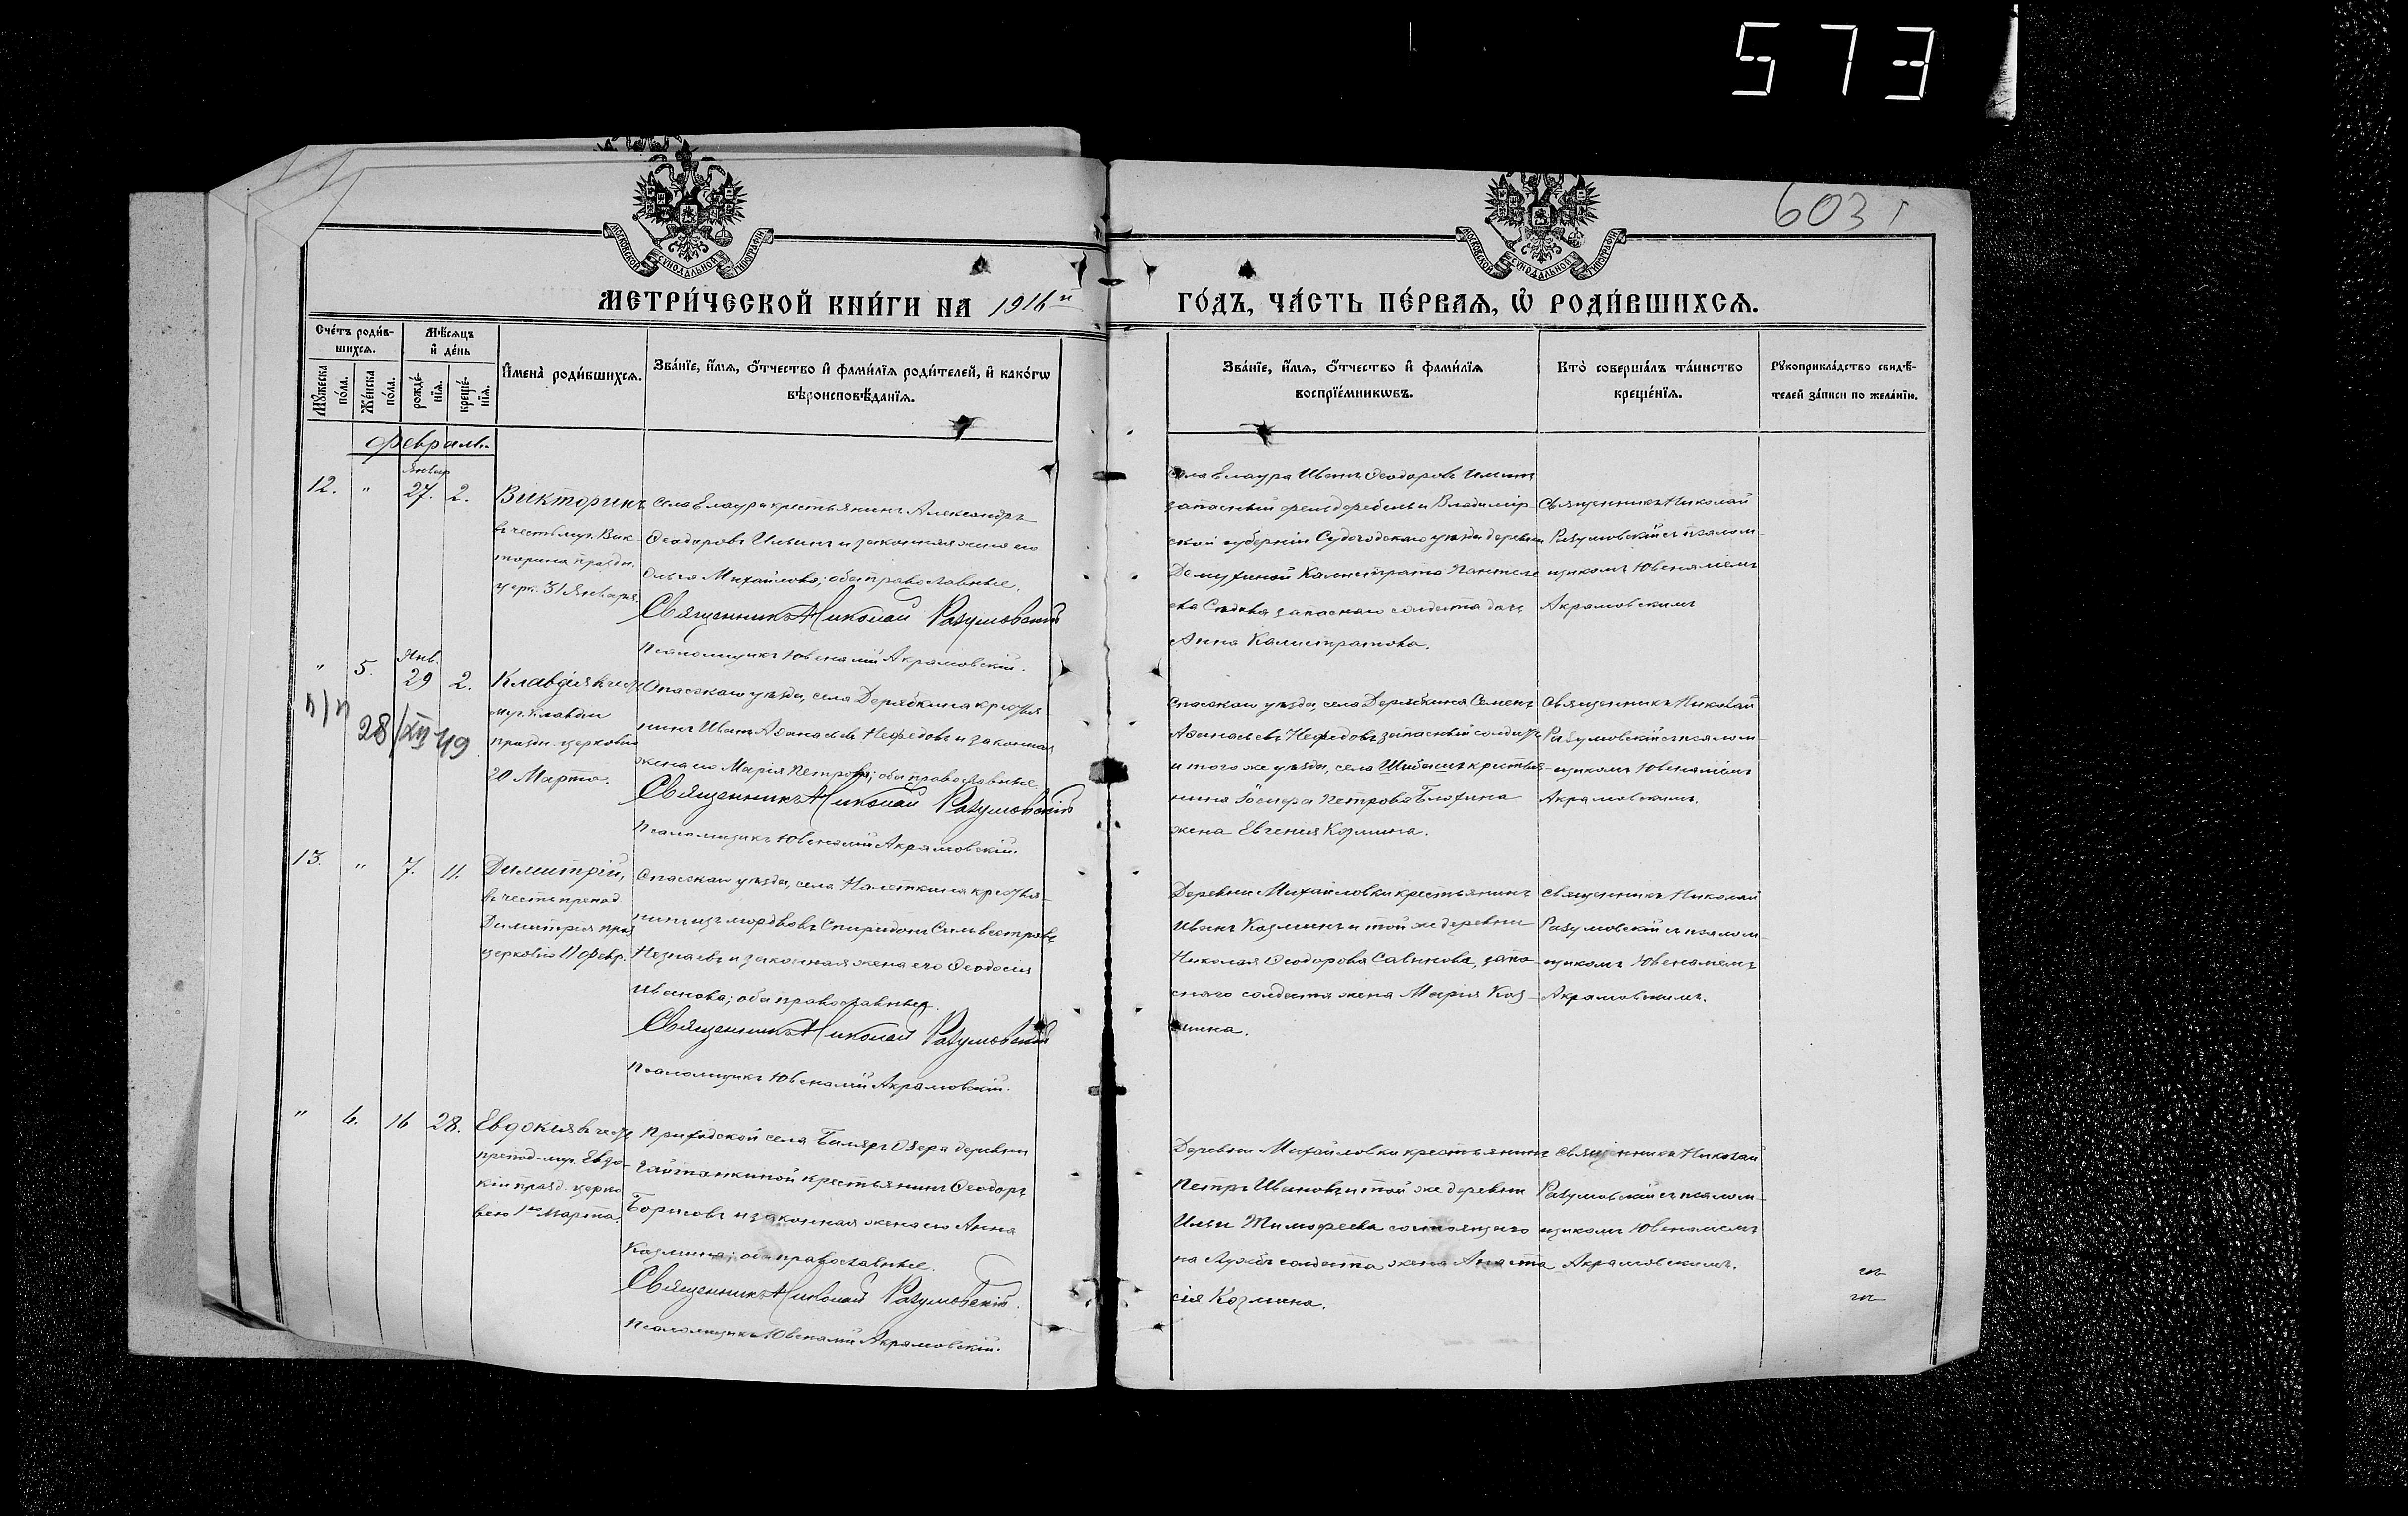 573
603
МОСКОВСКОЙ СѴНОДАЛЬНОЙ ТИПОГРАФІИ
МОСКОВСКОЙ СѴНОДАЛЬНОЙ ТИПОГРАФІИ
МЕТРИ́ЧЕСКОЙ КНИ́ГИ НА 1916 й
ГО́ДЪ, ЧА́СТЬ ПЕ́РВАЯ, Ѡ҆ РОДИ́ВШИХСЯ.
Сче́тъ роди́в-
шихся.
Мѣ́сяцъ
и҆ де́нь
Мꙋ́жеска
по́ла.
Же́нска
по́ла.
рожде́-
нїя.
креще́-
нїя.
И҆мена̀ роди́вшихся.
Зва́нїе, и҆́мя, ѻ҆́тчество и҆ фами́лїя роди́телей, и҆ како́гѡ
вѣроисповѣ́данїя.
Зва́нїе, и҆́мя, ѻ҆́тчество и҆ фами́лїя
воспрїе́мникѡвъ.
Кто̀ соверша́лъ та́инство
креще́нїя.
Рꙋкоприкла́дство свидѣ́-
телей за́писи по жела́нїю.
Февраль
Январ
12. " 27. 2.
Викторинъ
въ честь муч. Вик-
торина праздн.
церк. 31 Января.
села Елаура крестьянинъ Александръ
Ѳеодоровъ Ильинъ и законная жена его
Ольга Михайлова; оба православные.
Священникъ Николай Разумовскій
Псаломщикъ Ювеналій Акрамовскій.
села Елаура Иванъ Ѳеодоровъ Ильинъ
запасный фельдфебель и Владимір-
ской губерніи Судогодскаго уѣзда деревни
Калистрата Пантеле
ева запаснаго солдата дочь
Анна Калистратова.
Священникъ Николай
Разумовскій съ псалом-
щикомъ Ювеналіемъ
Акрамовскимъ
Янв.
" 5. 29 2.
п/п 28/XII 49
Клавдія въ честь
муч. Клавдіи
праздн. церковію
20 Марта.
Спасскаго уѣзда, села Дерябкина крестья-
нинъ Иванъ Аѳанасьевъ Нефедовъ и законная
жена его Марія Петрова; оба православные.
Священникъ Николай Разумовскій
Псаломщикъ Ювеналій Акрамовскій.
Спасскаго уѣзда, села Дерябкина Семенъ
Аѳанасьевъ Нефедовъ запасный солдатъ
и того же уѣзда, села Шибаши крестья-
нина Іосифа Петрова Блохина
жена Евгенія Козмина.
Священникъ Николай
Разумовскій съ псалом-
щикомъ Ювеналіемъ
Акрамовскимъ.
13. " 7. 11.
Димитрій,
въ честь препод.
Димитрія праз
церковію 11 Февр.
Спасскаго уѣзда, села Налеткина крестья-
нинъ изъ мордвовъ Спиридонъ Сильвестровъ
Незнаевъ и законная жена его Ѳеодосія
Иванова; оба православные.
Священникъ Николай Разумовскій
Псаломщикъ Ювеналій Акрамовскій.
Деревни Михайловки крестьянинъ
Иванъ Козминъ и той же деревни
Николая Ѳеодорова Савинова, запа-
снаго солдата жена Марія Коз-
мина.
Священникъ Николай
Разумовскій съ псалом-
щикомъ Ювеналіемъ
Акрамовскимъ.
" 6. 16 28.
Евдокія въ честь
препод-муч. Евдо-
кіи празд. церко
вію 1го Марта.
Приходской села Биляръ Озера деревни
Гайтанкиной крестьянинъ Ѳеодоръ
Борисовъ и законная жена его Анна
Козмина; оба православные.
Священникъ Николай Разумовскій.
Псаломщикъ Ювеналій Акрамовскій.
Деревни Михайловки крестьянинъ
Петръ Ивановъ и той же деревни
Ильи Тимофеева состоящаго
на службѣ солдата жена Анаста
сія Козмина.
Священникъ Николай
Разумовскій съ псалом-
щикомъ Ювеналіемъ
Акрамовскимъ.